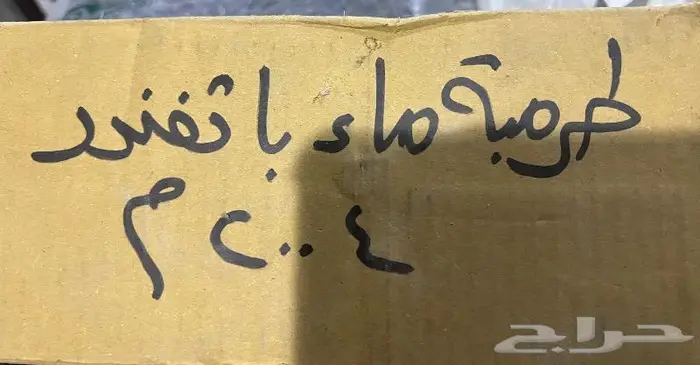 طرمبة ماء باثفندر
٢٠٠٤م
حراج